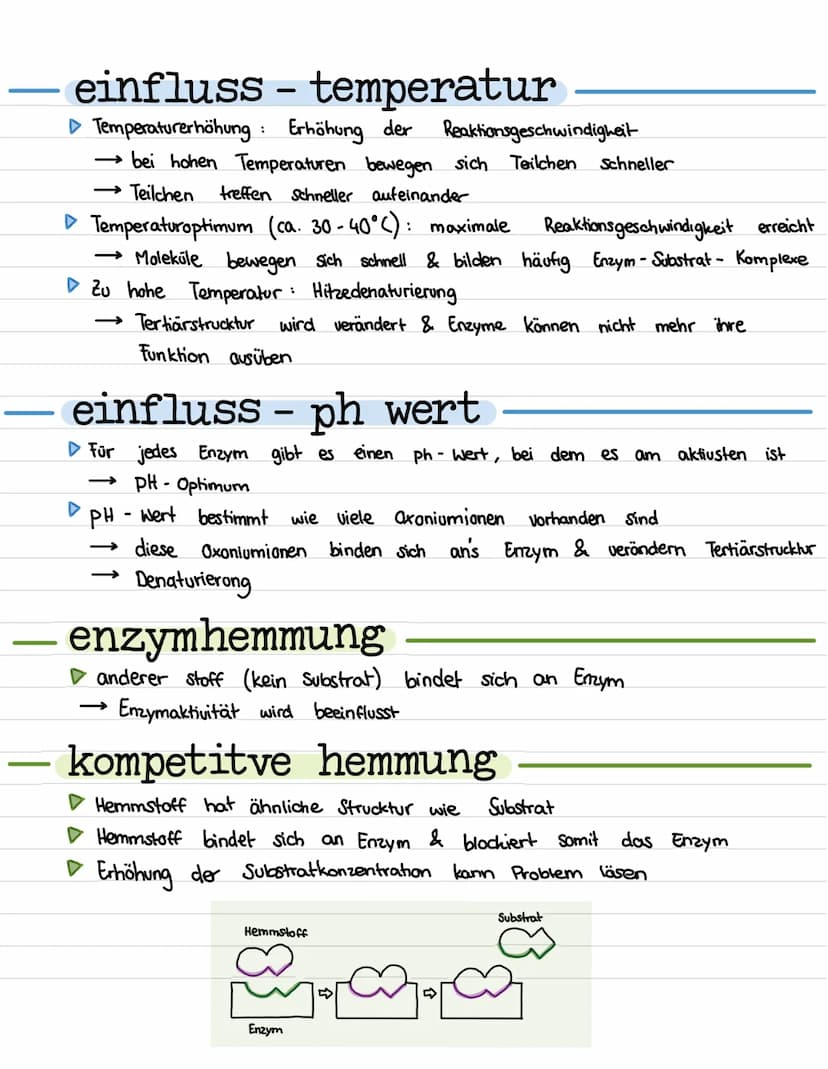 einfluss - temperatur
▷ Temperaturerhöhung : Erhöhung der Reaktionsgeschwindigkeit
→ bei hohen Temperaturen bewegen sich Teilchen schneller
→ Teilchen treffen schneller aufeinander
▷ Temperaturoptimum (ca. 30 - 40°C) : maximale Reaktionsgeschwindigkeit erreicht
→ Moleküle bewegen sich schnell & bilden häufig Enzym - Substrat - Komplexe
▷ Zu hohe Temperatur : Hitzedenaturierung
→ Tertiärstrucktur wird verändert & Enzyme können nicht mehr ihre
Funktion ausüben
einfluss - ph wert
▷ Für jedes Enzym gibt es einen ph - Wert, bei dem es am aktivsten ist
→ pH - Optimum
▷ pH - Wert bestimmt wie viele Oxoniumionen vorhanden sind
→ diese Oxoniumionen binden sich an's Enzym & verändern Tertiärstrucktur
→ Denaturierung
enzymhemmung
▷ anderer Stoff (kein Substrat) bindet sich an Enzym
→ Enzymaktivität wird beeinflusst
kompetitve hemmung
▷ Hemmstoff hat ähnliche Strucktur wie Substrat
▷ Hemmstoff bindet sich an Enzym & blockiert somit das Enzym
▷ Erhöhung der Substratkonzentration kann Problem lösen
Substrat
Hemmstoff
Enzym